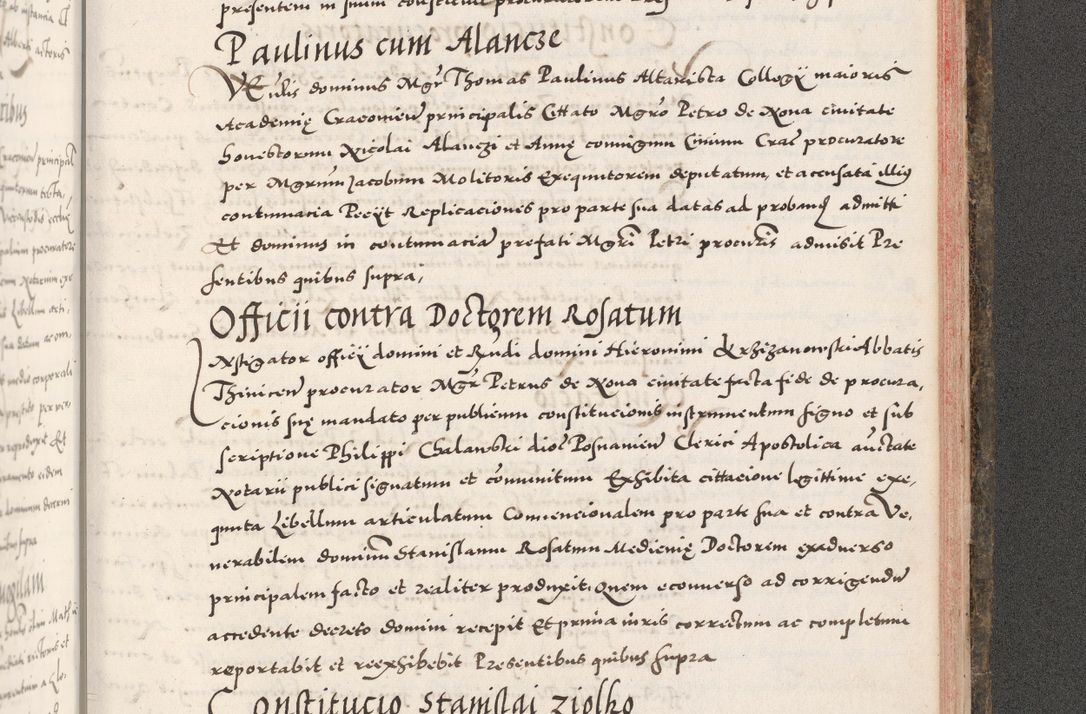 presentem in suum
Paulinus cum Alancze
Vennlis dominus Mgr Thomas Paulinus Altarista Collegy maioris
Academię Cracovien principalis Cittato Mgro Petro de Nova civitate
honestorum Nicolai Alanczi et Annę coniugum Civium Crac procuratore
per Mgrum Jacobum Molitoris exequutorem deputatum, et accusata illius
contumacia Peeyt Replicaciones pro parte sua datas ad proband admitti
Et dominus in contumacia prefati Mgri Petri procuris admisit Pre
sentibus quibus supra,
Officii contra Doctorem Rosatum
Instigator officy domini et Rndi domini Hieronimi Krzizanowski Abbatis
Thinicen procurator Mgr Petrus de Nova civitate facta fide de procura,
cionis suę mandato per publicum constitucionis instrumentum signo et sub
scriptione Philippi Chalawski dioc Posnanien Clerici Apostolica auctate
Notarii publici signatum et comunitum Exhibita cittacione legittime exe,
quuta Libellum articulatum Convencionalem pro parte sua et contra Ve,
nerabilem dominum Stanislaum Rosatum Medicinę Doctorem exadverso
principalem facto et realiter produxit, Quem econverso ad corrigendum
accedente decreto domini recepit Et prima iuris correctum ac completum
reportabit et reexhibebit Presentibus quibus supra
Constitucio Stanislai Ziolko